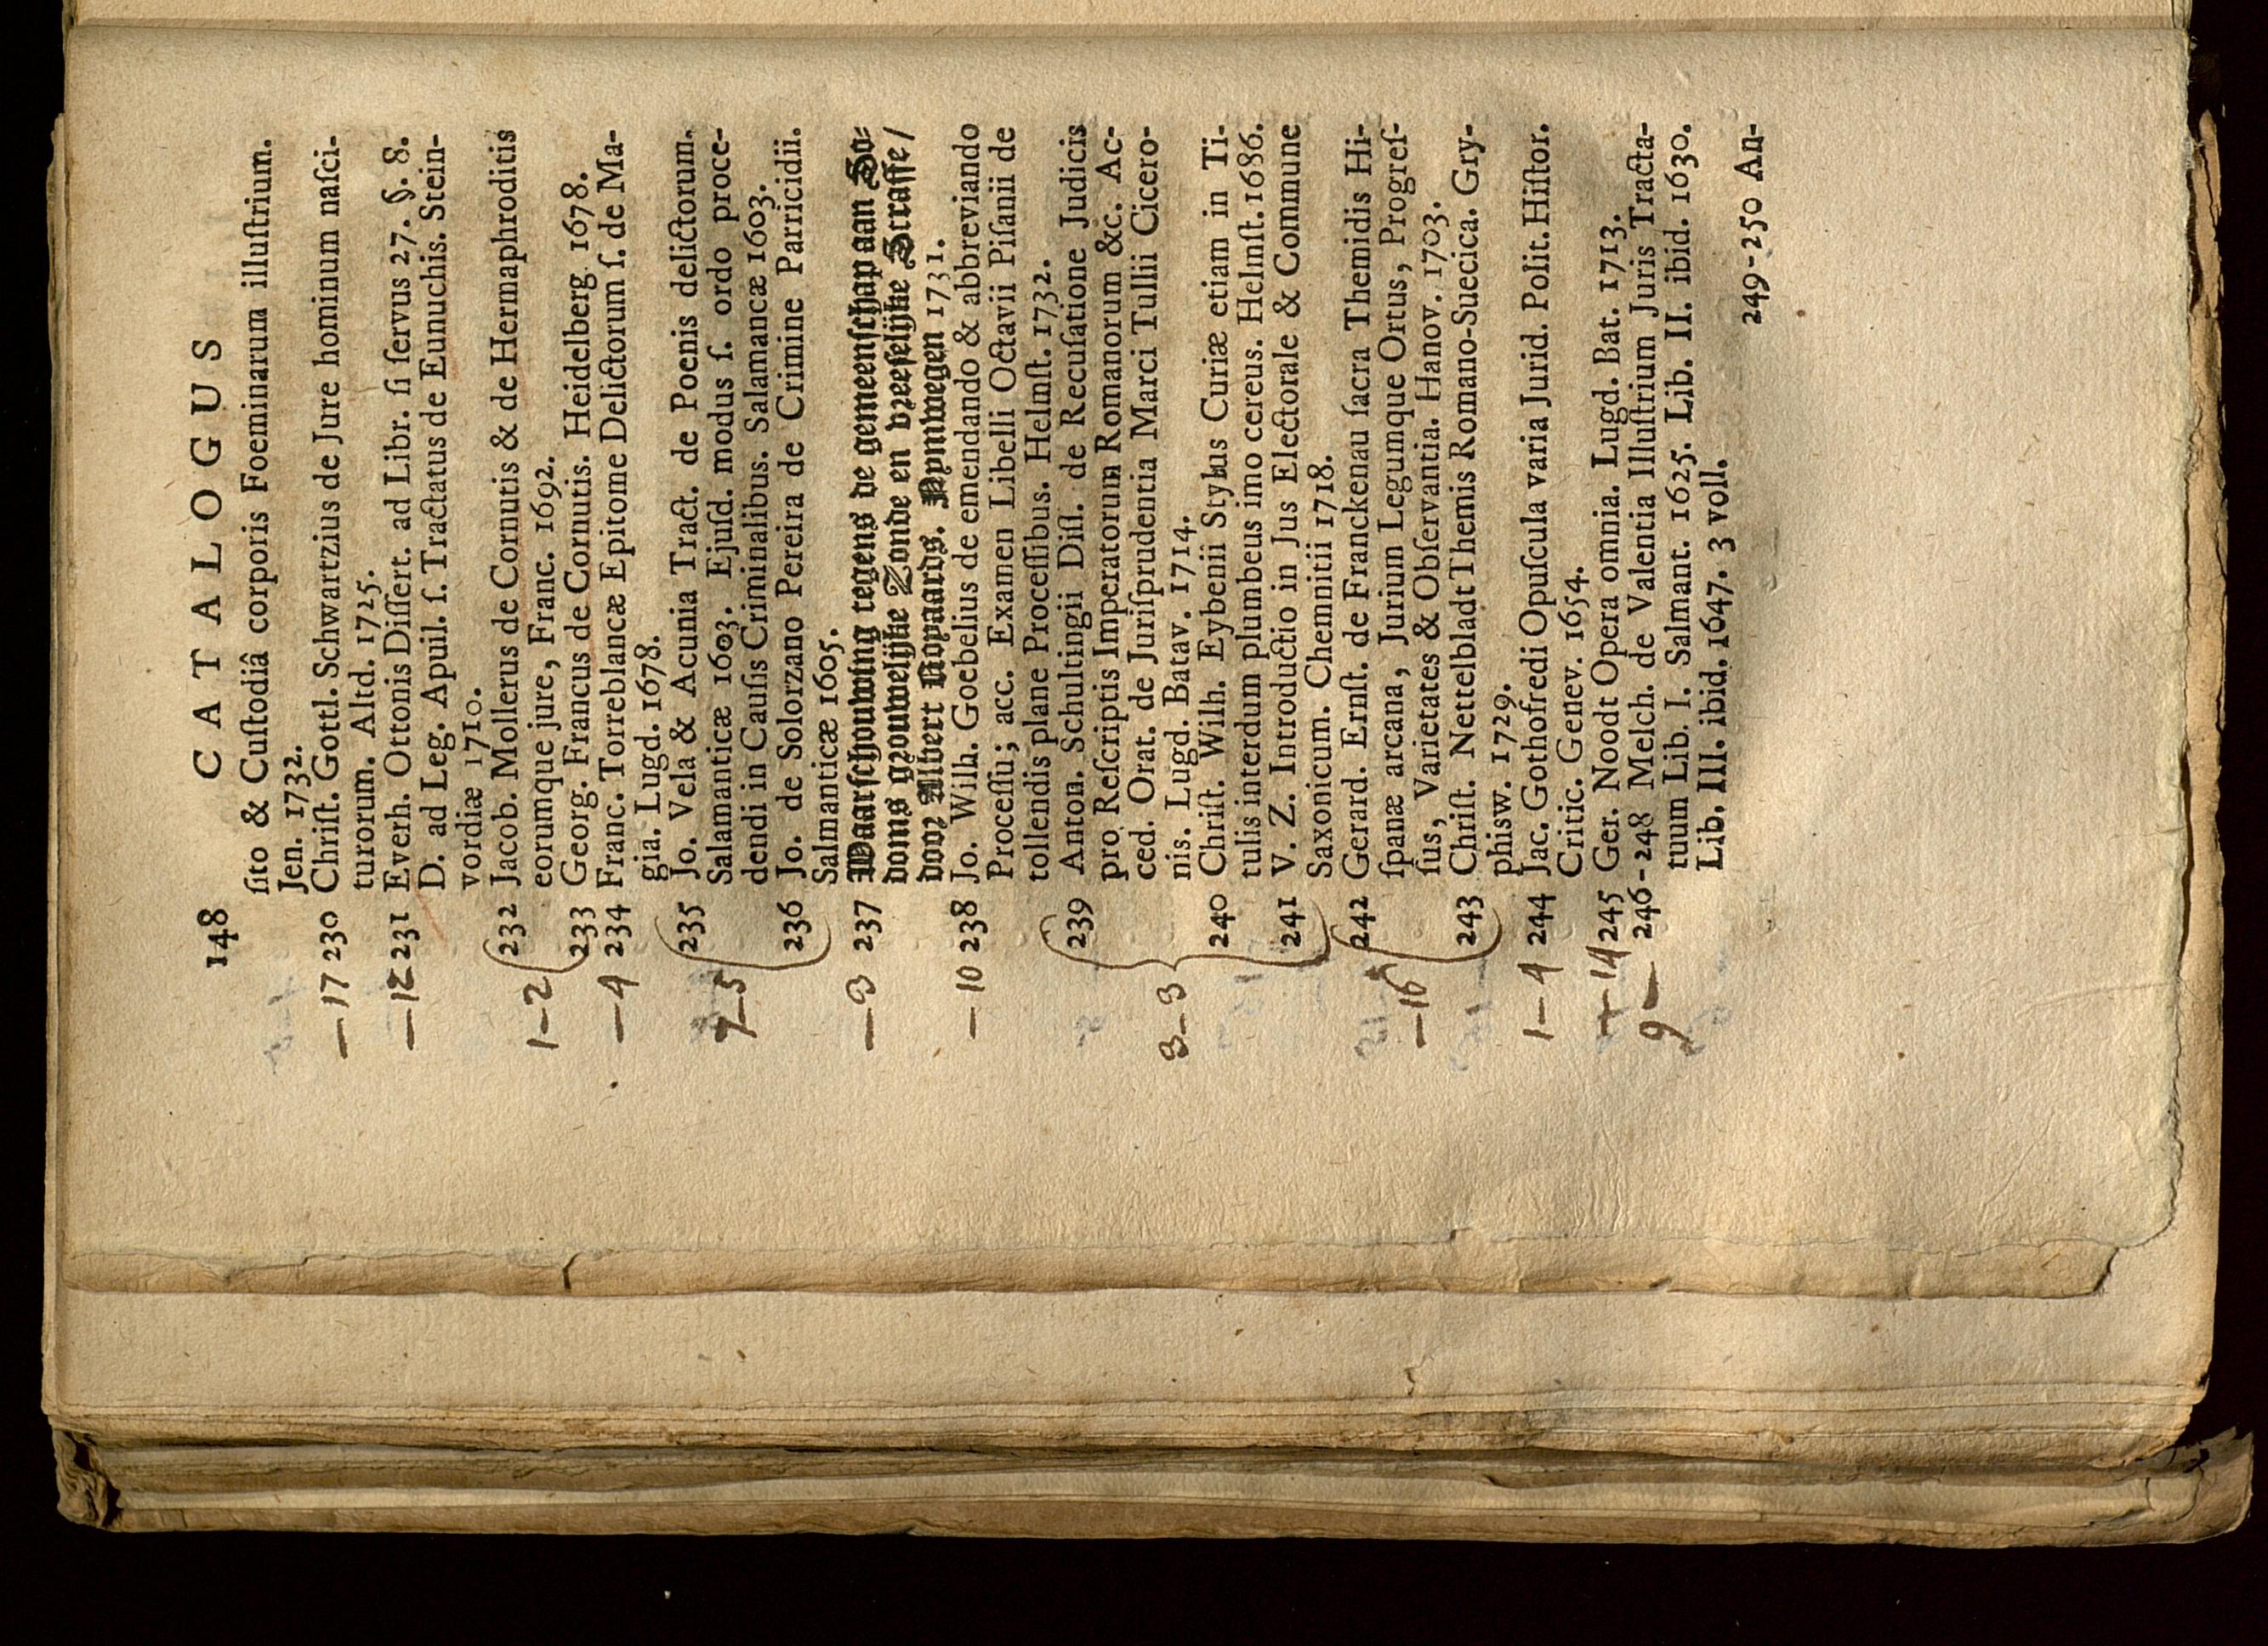 148 CATALOGUS
ſito & Cuſtodiâ corporis Foeminarum illuſtrium.
Jen. 1732.
—17 230 Chriſt. Gottl. Schwartzius de Jure hominum naſci-
turorum. Altd. 1725.
—12 231 Everh. Ottonis Diſſert. ad Libr. ſi ſervus 27. §. 8.
D. ad Leg. Apuil. ſ. Tractatus de Eunuchis. Stein-
vordiæ 1710.
1–2 232 Jacob. Mollerus de Cornutis & de Hermaphroditis
eorumque jure, Franc. 1692.
233 Georg. Francus de Cornutis. Heidelberg. 1678.
—4 234 Franc. Torreblancæ Epitome Delictorum ſ. de Ma-
gia. Lugd. 1678.
7–5 235 Jo. Vela & Acunia Tract. de Poenis delictorum.
Salamanticæ 1603. Ejuſd. modus ſ. ordo proce-
dendi in Cauſis Criminalibus. Salamancæ 1603.
236 Jo. de Solorzano Pereira de Crimine Parricidii.
Salmanticæ 1605.
—3 237 Waarſchouwing tegens de gemeenſchap aan So-
doms grouwelijke Zonde en vreeſelijke Straffe /
door Albert Royaards. Nymwegen 1731.
—10 238 Jo. Wilh. Goebelius de emendando & abbreviando
Proceſſu; acc. Examen Libelli Octavii Piſanii de
tollendis plane Proceſſibus. Helmſt. 1732.
239 Anton. Schultingii Diſſ. de Recuſatione Judicis
pro Reſcriptis Imperatorum Romanorum &c. Ac-
ced. Orat. de Juriſprudentia Marci Tullii Cicero-
nis. Lugd. Batav. 1714.
3–3 240 Chriſt. Wilh. Eybenii Stylus Curiæ etiam in Ti-
tulis interdum plumbeus imo cereus. Helmſt. 1686.
241 V. Z. Introductio in Jus Electorale & Commune
Saxonicum. Chemnitii 1718.
—16 242 Gerard. Ernſt. de Franckenau ſacra Themidis Hi-
ſpanæ arcana, Jurium Legumque Ortus, Progreſ-
ſus, Varietates & Obſervantia. Hanov. 1703.
243 Chriſt. Nettelbladt Themis Romano-Suecica. Gry-
phisw. 1729.
1–4 244 Jac. Gothofredi Opuſcula varia Jurid. Polit. Hiſtor.
Critic. Genev. 1654.
—14 245 Ger. Noodt Opera omnia. Lugd. Bat. 1713.
9— 246-248 Melch. de Valentia Illuſtrium Juris Tracta-
tuum Lib. I. Salmant. 1625. Lib. II. ibid. 1630.
Lib. III. ibid. 1647. 3 voll.
249-250 An-